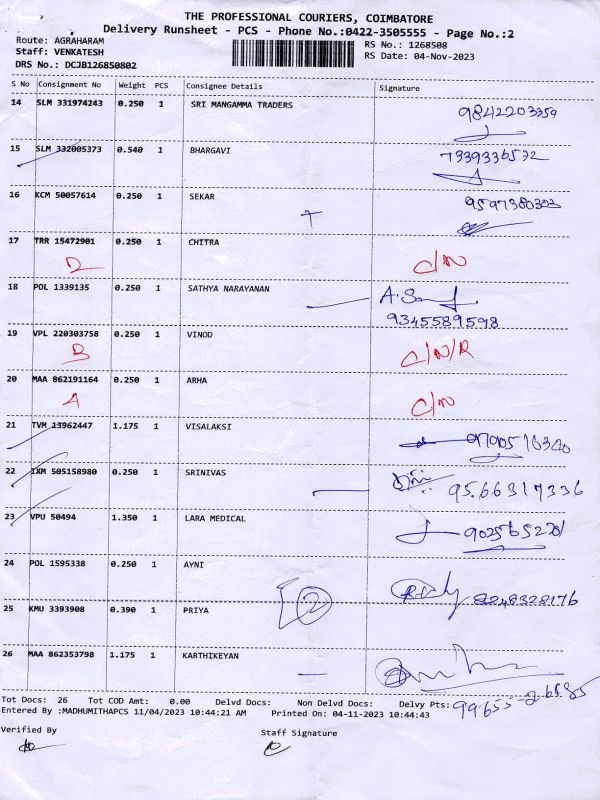 THE PROFESSIONAL COURIERS, COIMBATORE
Delivery Runsheet - PCS - Phone No.:0422-3505555 - Page No.:2
Route: AGRAHARAM
RS No.: 1268508
Staff: VENKATESH
RS Date: 04-Nov-2023
DRS No.: DCJB126850802
S No Consignment No Weight PCS Consignee Details Signature
14 SLM 331974243 0.250 1 SRI MANGAMMA TRADERS 9842203359
15 SLM 332005373 0.540 1 BHARGAVI 7339336532
16 KCM 50057614 0.250 1 SEKAR 9597380303
17 TRR 15472901 0.250 1 CHITRA C/N
18 POL 1339135 0.250 1 SATHYA NARAYANAN
9345589598
19 VPL 220303758 0.250 1 VINOD C/N/R
20 MAA 862191164 0.250 1 ARHA C/N
21 TVM 13962447 1.175 1 VISALAKSI
22 IXM 505158980 0.250 1 SRINIVAS 95.66317336
23 VPU 50494 1.350 1 LARA MEDICAL
24 POL 1595338 0.250 1 AYNI 8248328176
25 KMU 3393908 0.390 1 PRIYA 2
26 MAA 862353798 1.175 1 KARTHIKEYAN
Tot Docs: 26 Tot COD Amt: 0.00 Delvd Docs: Non Delvd Docs: Delvy Pts:
Entered By :MADHUMITHAPCS 11/04/2023 10:44:21 AM Printed On: 04-11-2023 10:44:43
Verified By Staff Signature